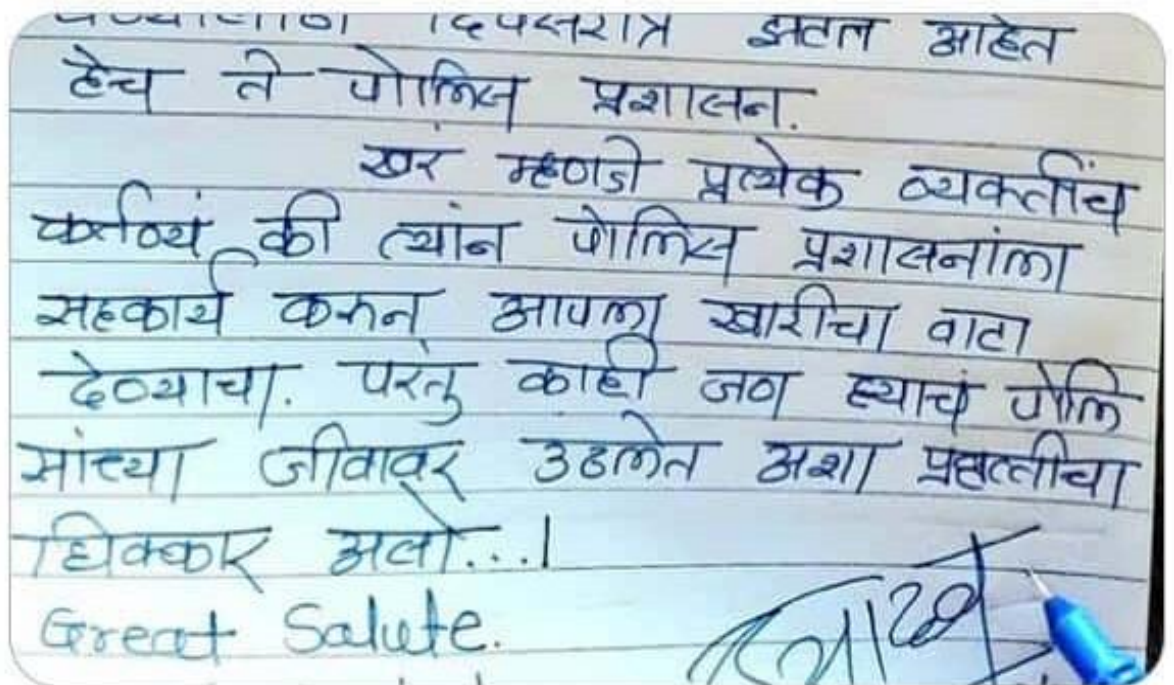 दिवसरात्र झटत आहेत
हेच ते पोलिस प्रशासन.
खरं म्हणजे प्रत्येक व्यक्तींच
कर्तव्यं की त्यांन पोलिस प्रशासनांला
सहकार्य करुन आपला खारीचा वाटा
देण्याचा. परंतु काही जण ह्याचं पोलि
सांच्या जीवावर उठलेत अशा प्रवृत्तीचा
धिक्कार असो...!
Great Salute.